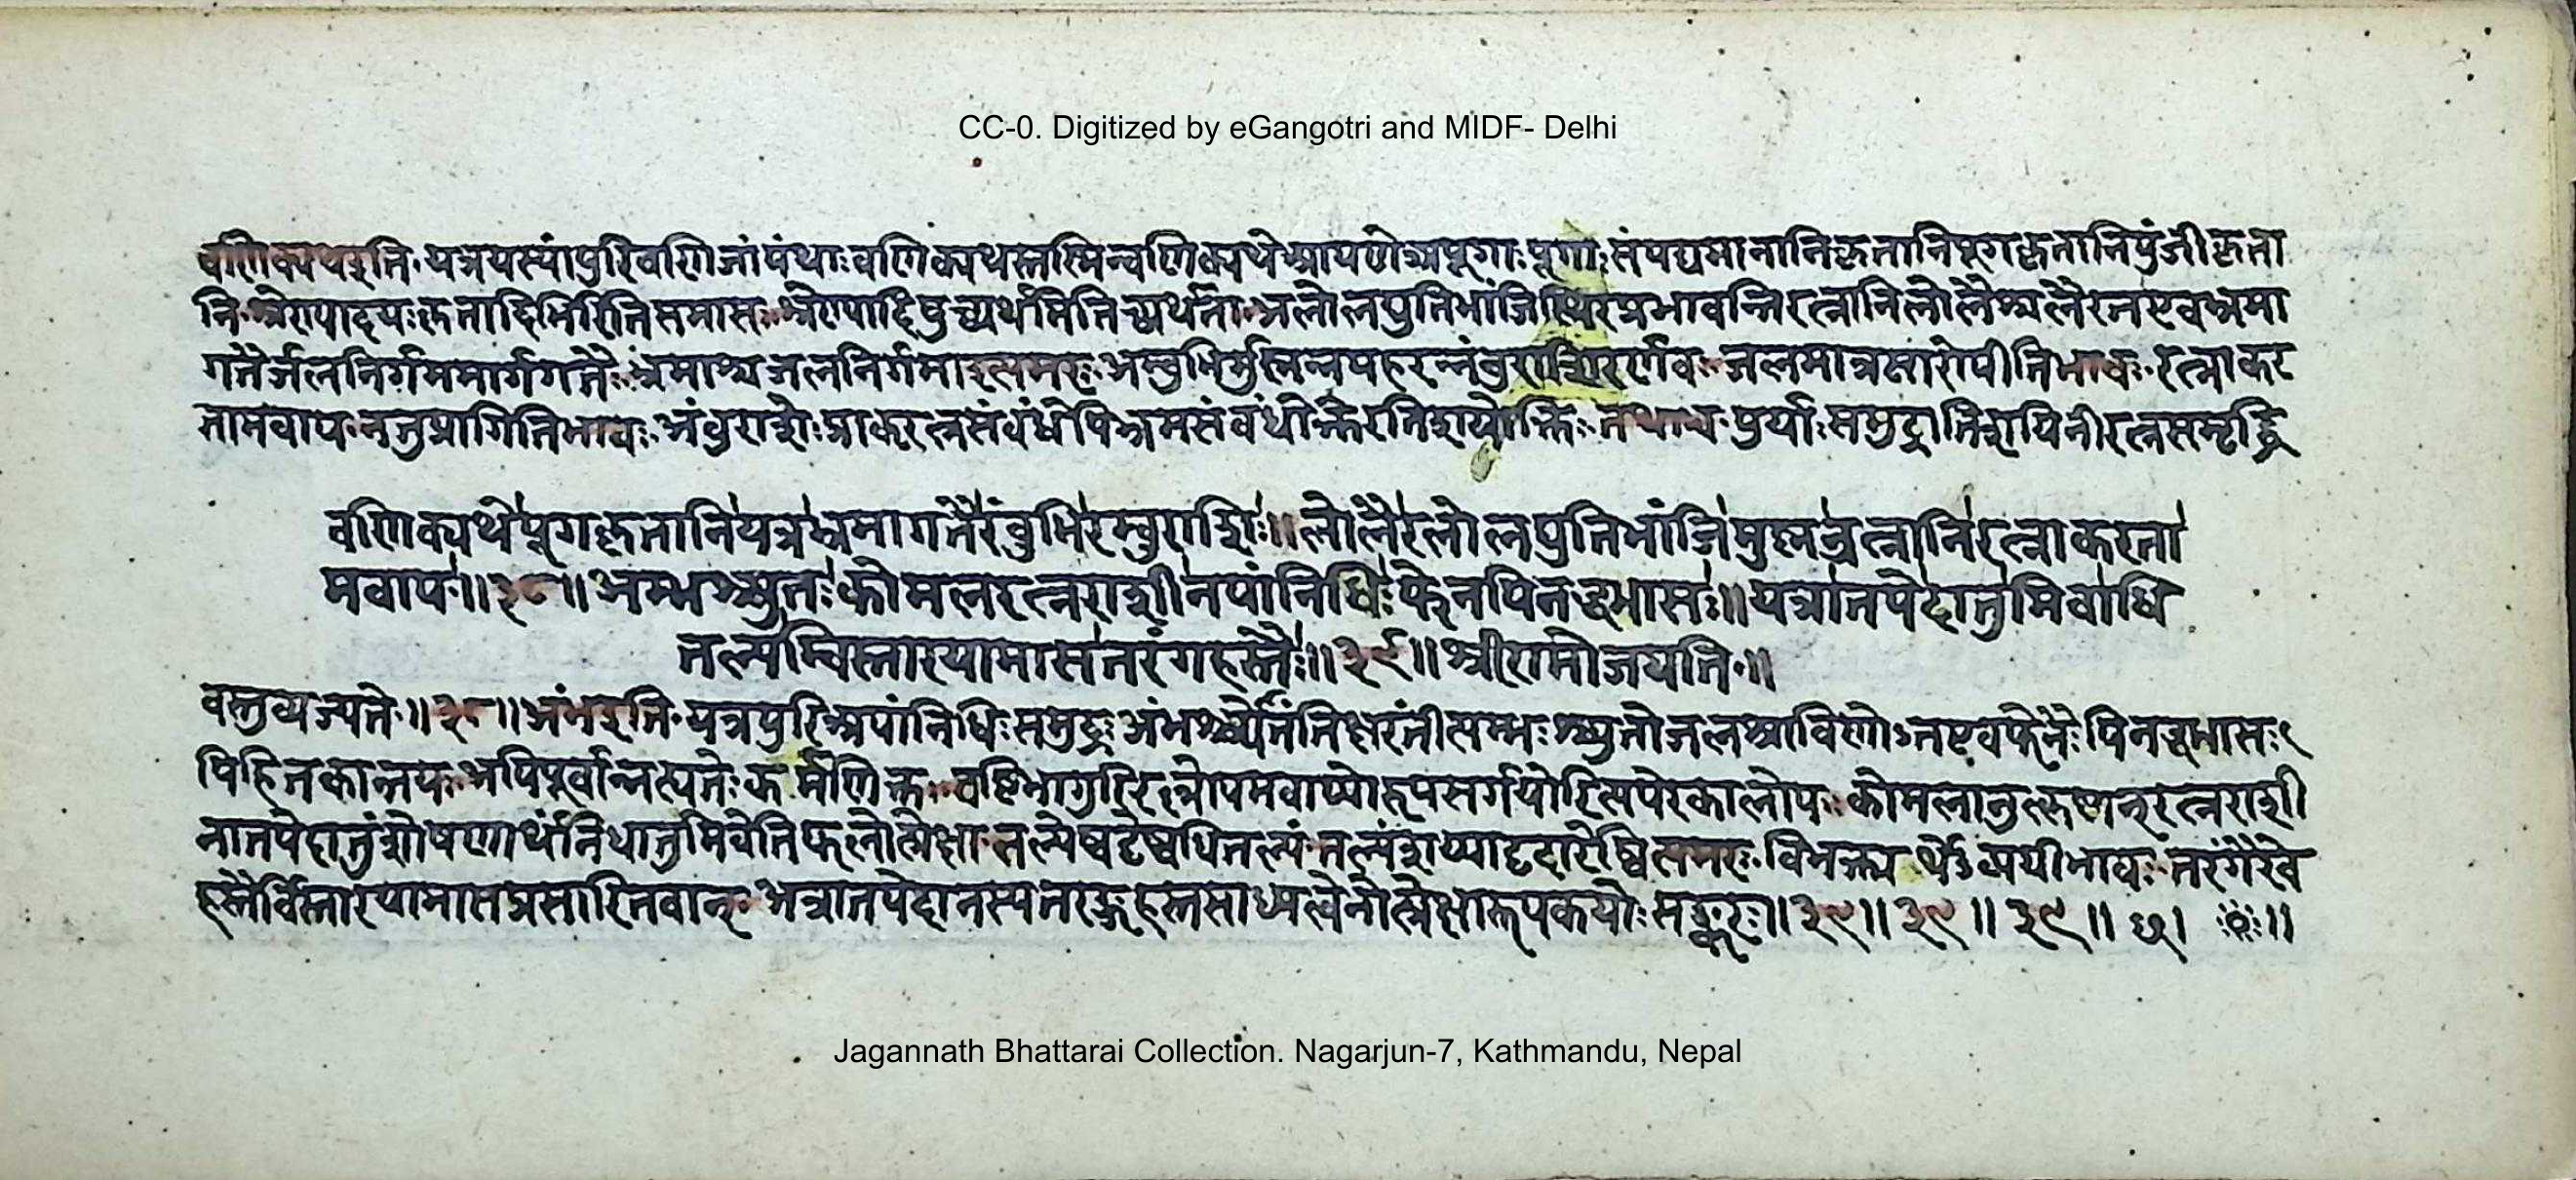 CC-0. Digitized by eGangotri and MIDF- Delhi
वणिक्पथइति यत्रयस्यांपुरिवणिजांपंथाःवणिक्पथस्तस्मिन्वणिक्पथेआपणेअपूगाःपूगाःसंपद्यमानानिकृतानिपूगकृतानिपुंजीकृता
नि श्रेण्यादयःकृतादिभिरितिसमासः श्रेण्यादिषुच्व्यर्थमितिच्व्यर्थता अलोलद्युतिभांजिस्थिरप्रभावन्तिरत्नानिलोलैश्चलैरतएवभ्रमा
गतैर्जलनिर्गममार्गगतैः भ्रमाश्चजलनिर्गमाइत्यमरः अम्बुभिर्मुष्णन्नपहरन्नंबुराशिरर्णवः जलमात्रसारोपीतिभावः रत्नाकर
तामवाप नतुप्रागितिभावः अंबुराशेःप्राकरत्नसंबंधेपिक्रमसंबंधोक्तेरतिशयोक्तिः तथाच पुर्याःसमुद्रातिशायिनीरत्नसमृद्धि
वणिक्पथेपूगकृतानियत्रभ्रमागतैरंबुभिरम्बुराशिः॥लोलैरलोलद्युतिभांजिमुष्णन्रत्नानिरत्नाकरता
मवाप॥३८॥अम्भश्च्युतःकोमलरत्नराशीनपांनिधिःफेनपिनद्धभासः॥यत्रातपेदातुमिवाधि
तल्पम्विस्तारयामासतरंगहस्तैः॥३९॥श्रीरामोजयति॥
वस्तुव्यज्यते॥३८॥अंभइति यत्रपुरिअपांनिधिःसमुद्रः अंभश्च्योतंतिक्षरंतीत्यम्भःश्च्युतोजलस्राविणोऽतएवफेनैःपिनद्धभासः
पिहितकान्तयः अपिपूर्वान्नह्यतेःकर्मणिक्तः वष्टिभागुरिरल्लोपमवाप्योरुपसर्गयोरित्यपेरकालोपः कोमलानुत्कृष्टान्रत्नराशी
नातपेदातुंशोषणार्थंनिधातुमिवेतिफलोत्प्रेक्षा तल्पेष्वट्टेष्वधितल्पं तल्पंशय्याट्टदारेष्वित्यमरः विभक्त्यर्थेऽव्ययीभावः तरंगैरेव
हस्तैर्विस्तारयामासप्रसारितवान् अत्रातपेदानस्यतरङ्गहस्तसाध्यत्वेनोत्प्रेक्षारूपकयोः सङ्करः॥३९॥३९॥३९॥
Jagannath Bhattarai Collection. Nagarjun-7, Kathmandu, Nepal